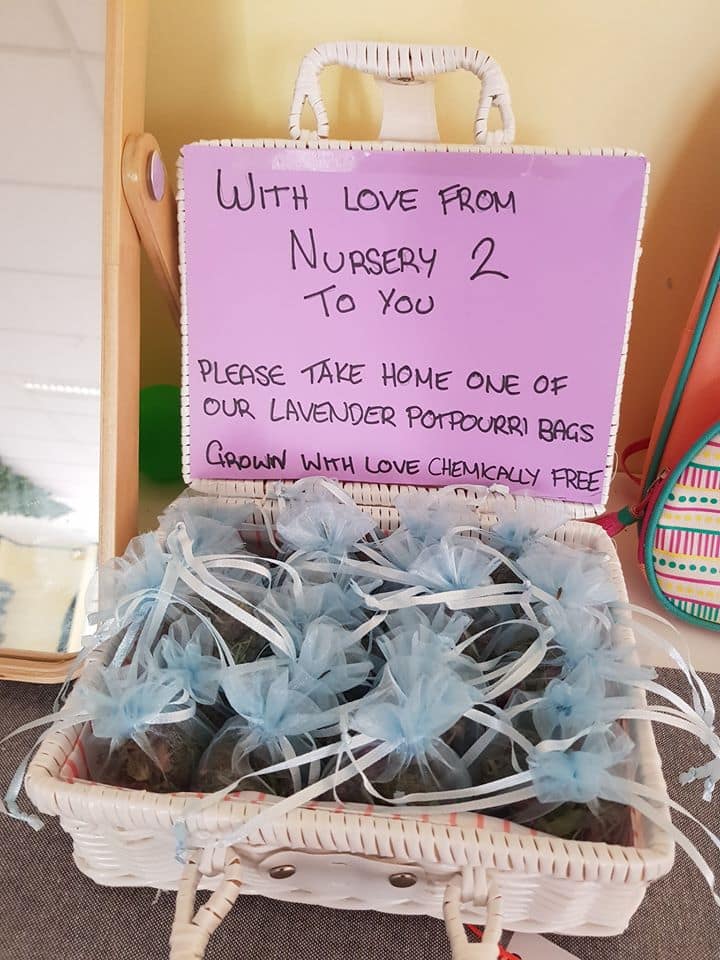 WITH LOVE FROM
NURSERY 2
TO YOU
PLEASE TAKE HOME ONE OF
OUR LAVENDER POTPOURRI BAGS
GROWN WITH LOVE CHEMICALLY FREE